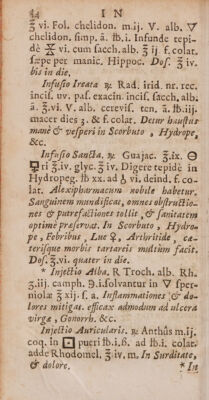 34 I N
ʒ vi. Fol. chelidon. m.ij. V. alb. ▽
chelidon. simp. ā. ℔.i. Infunde tepi-
dè vi. cum sacch. alb. ℥ ij f. colat.
sæpe per manic. Hippoc. Dos. ℥ iv.
bis in die.
Infusio Ireata Rad. irid. nr. rec.
incis. uv. pas. exacin. incis. sacch. alb.
ā. ℥.vi. V. alb. cerevis. ten. ā. ℔.iij.
macer dies 3. & f. colat. Detur haustus
manè & vesperi in Scorbuto, Hydrope,
&c.
Infusio Sancta. Guajac. ℥.ix.
ri ℥.iv. glyc. ℥ iv. Digere tepidè in
Hydropeg. ℔ xx. ad vi. deind. f. co-
lat. Alexipharmacum nobile habetur.
Sanguinem mundificat, omnes obstructio-
nes & putrefactiones tollit, & sanitatem
optimè præservat. In Scorbuto, Hydro-
pe, Febribus, Lue ♀, Arthritide, cæ-
terisque morbis tartarei multùm facit.
Dos. ℥.vi. quater in die.
* Injectio Alba. R Troch. alb. Rh.
ʒ.iij. camph. ℈.i.solvantur in ▽ sper-
niolæ ℥ xij. f. a. Inflammationes & do-
lores mitigat. efficax admodum ad ulcera
virgæ, Gonorrh. &c.
Injectio Auricularis. Anthûs m.ij.
coq. in □ pueri ℔.i.ß. ad ℔.i. colat.
adde Rhodomel. ℥ iv, m. In Surditate,
& dolore. * In